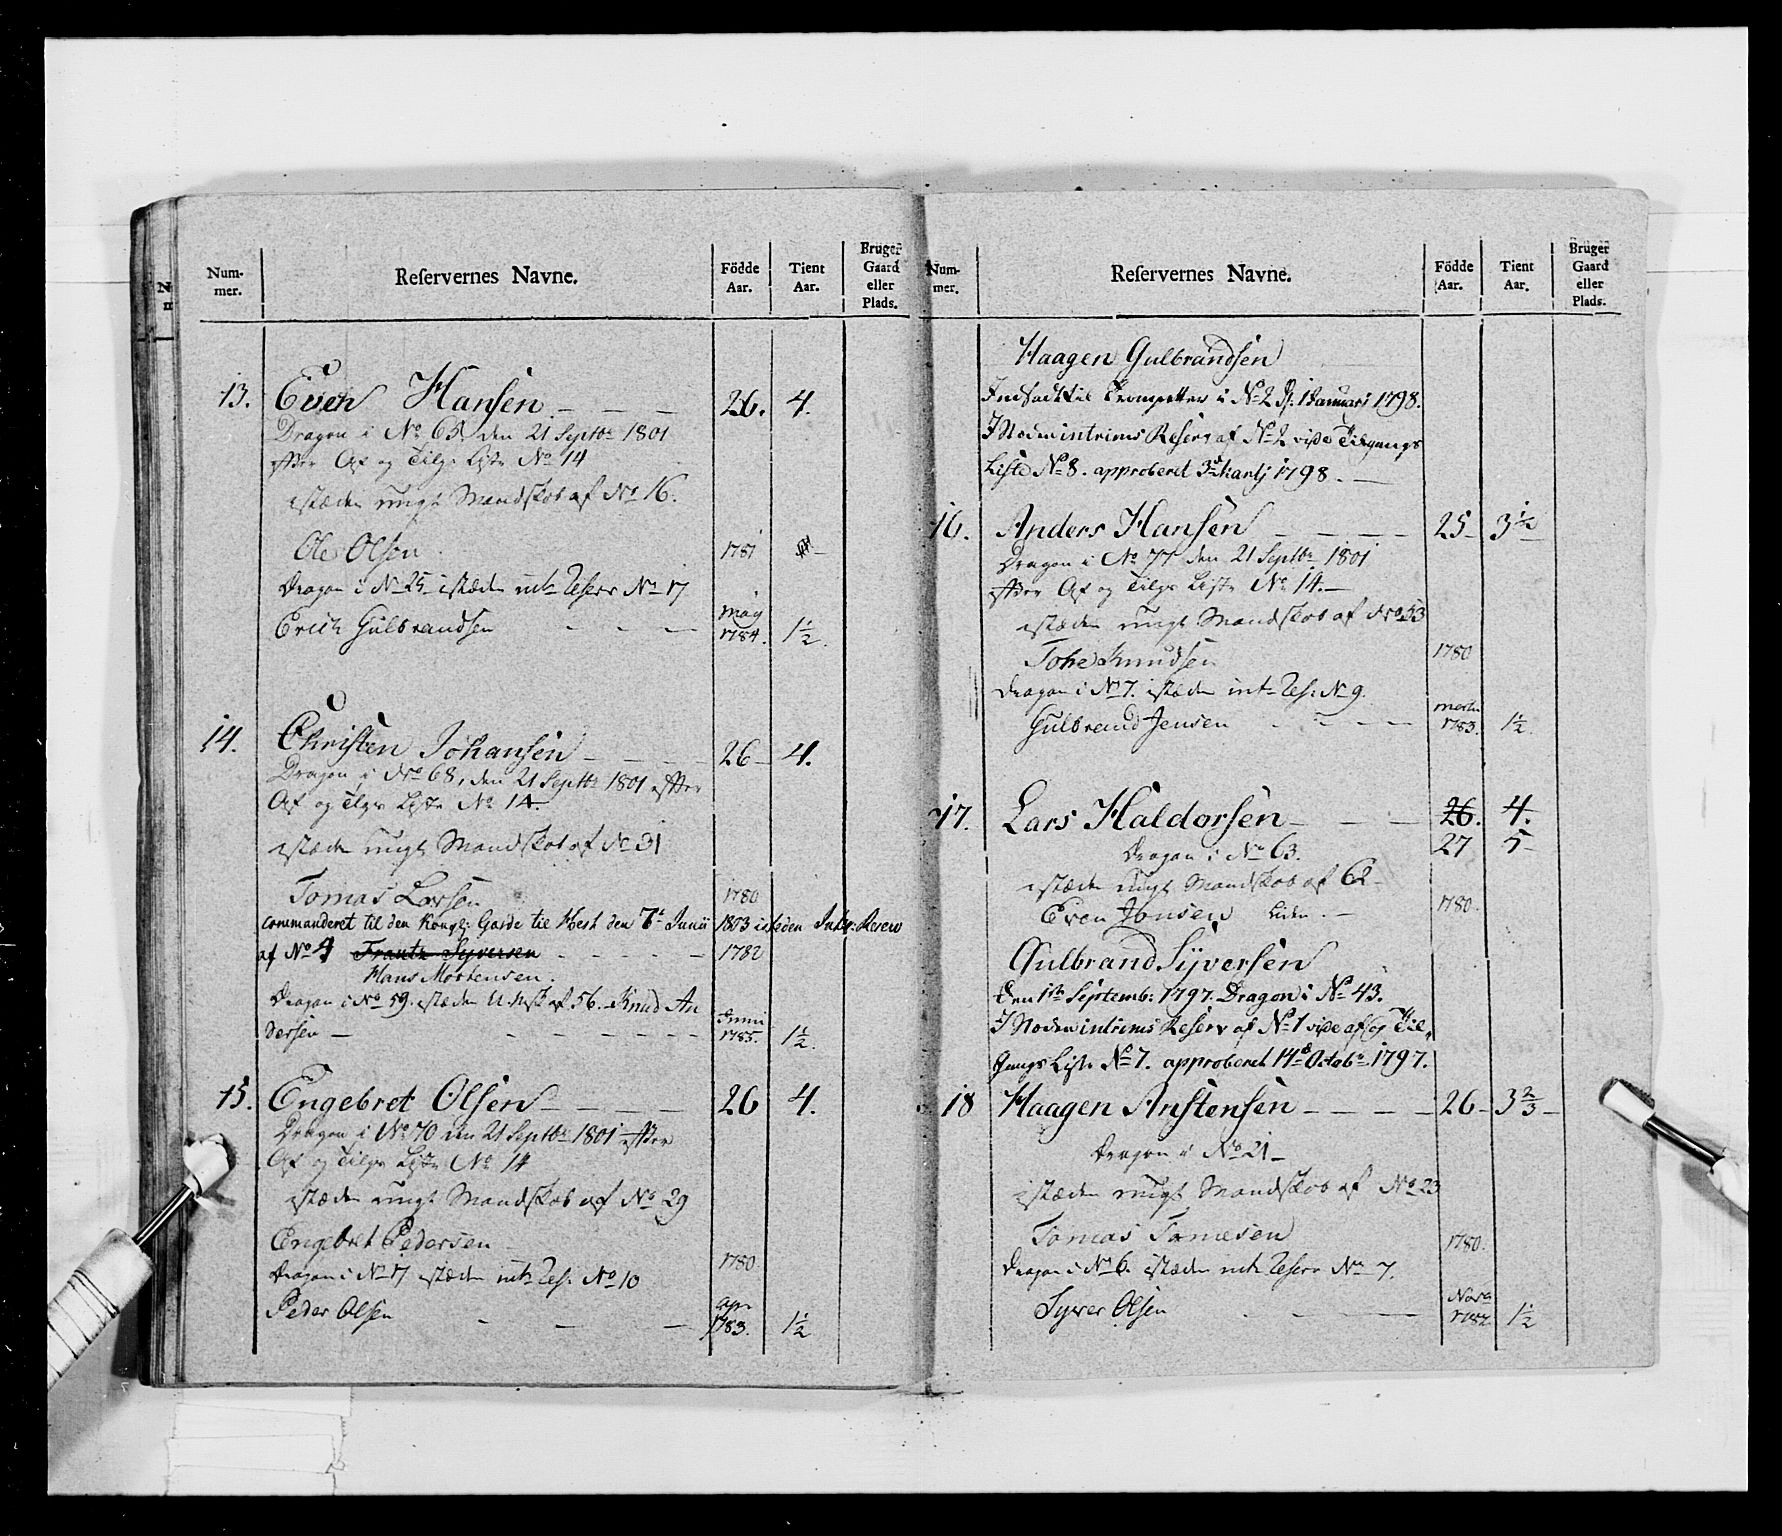 Num-
mer.
Reſervernes Navne.
Födde
Aar.
Tient
Aar.
Bruger
Gaard
eller
Plads.
13. Even Hansen 26. 4.
Dragon i No 65. den 21 Septbr 1801
efter Af og Tilgs Liste No 14
istæden ungt Mandskab af No 16.
Ole Olsen 1781
Dragon i No 25 istæden int: Reserv No 17
May
Erich Gulbrandsen 1784. 1½.
14. Christen Johansen 26 4.
Dragon i No 68, den 21 Septbr 1801 efter
Af og Tilgs Liste No 14.
istæden ungt Mandskab af No 31
Tomas Larsen 1780
commanderet til den Kongl: Garde til Hest den 7de Junii 1803 isteden Intr: Reserv
af No 4 Frantz Syversen 1782
Hans Mortensen.
Dragon i No 59. istæden U. Msk af 56. Knud An
Junii
dersen 1785. 1½.
15. Engebret Olsen 26 4.
Dragon i No 70 den 21 Septbr 1801 efter
Af og Tilgs Liste No 14
istæden ungt Mandskab af No 29
Engebret Pedersen 1780
Dragon i No 17 istæden int: Res. No 10
Apr
Peder Olsen 1783. 1½
Num-
mer.
Reſervernes Navne.
Födde
Aar.
Tient
Aar.
Bruger
Gaard
eller
Plads.
Haagen Gulbrandsen
Indsadt til Trompetter i No 2 D. 1 Januari 1798.
I Steden intrims Reserv af No 2 vide Tilgangs
Liste No 8. approberet 3die Martj 1798.
16. Anders Hansen 25 3½
Dragon i No 77 den 21 Septbr 1801
efter Af og Tilgs Liste No 14.
istæden ungt Mandskab af No 53
Tohe Knudsen 1780
Dragon i No 7. istæden int: Res: No 9.
Gulbrand Jensen 1783. 1½.
17. Lars Haldorsen 26. 4.
27 5
Dragon i No 63.
istæden ungt Mandskab af 62
Even Jonsen Liden. 1780.
Gulbrand Syversen
Den 1ste Septemb: 1797. Dragon i No 43.
I Steden intrims Reserv af No 1 vide af og Til,,
gangs Liste No 7. approberet 14de Octobr 1797.
18 Haagen Anstensen 26 3⅔
Dragon i No 21
istæden ungt Mandskab af No 23
Tomas Tomesen 1780.
Dragon i No 6. istæden int: Reserv No 7.
Syver Olsen 1½